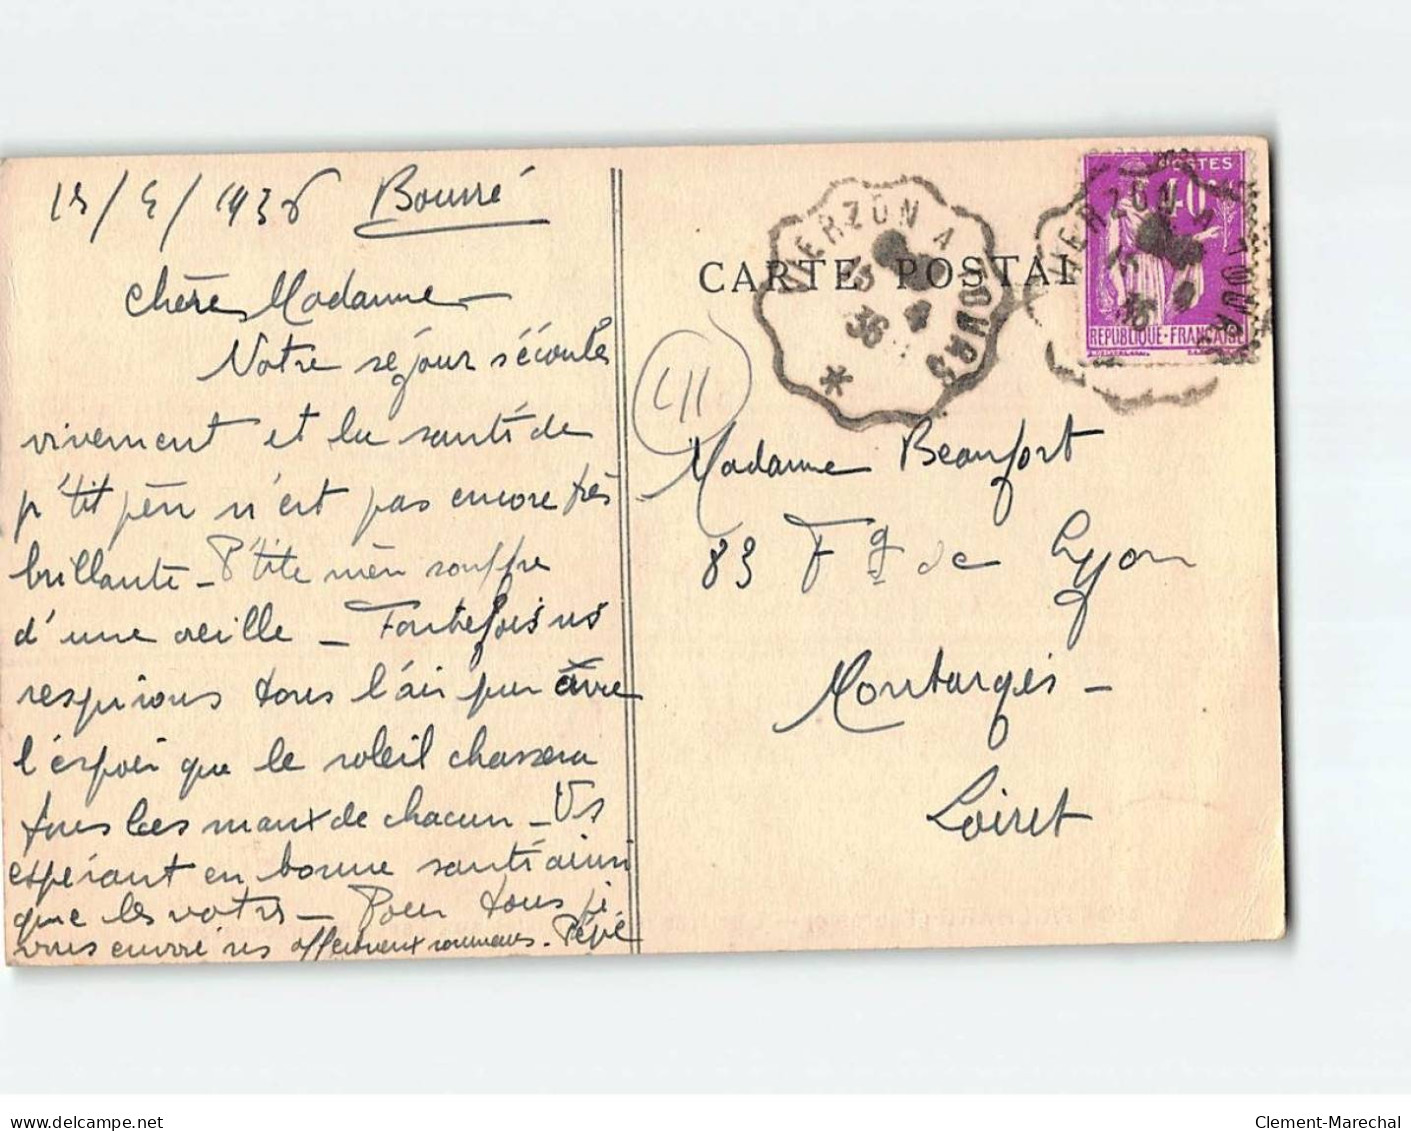 15/4/1936 Bourré
Chère Madame –
Notre séjour s'écoule
vivement et la santé de
p'tit pèr n'est pas encore très
brillante – P'tite mèr souffre
d'une oreille – Toutefois ns
respirons tous l'air pur avec
l'espoir que le soleil chassera
tous les maux de chacun – Vs
espérant en bonne santé ainsi
que les votres – Pour tous je
vous envoie ns affectueux souvenirs. Pépé
CARTE POSTALE
VIERZON A TOURS
15
4
36
*
VIERZON A TOURS
15
4
36
POSTES
40
REPUBLIQUE-FRANÇAISE
L11
Madame Beaufort
83 Fg de Lyon
Montargis –
Loiret
delcampe.net
Clement-Marechal